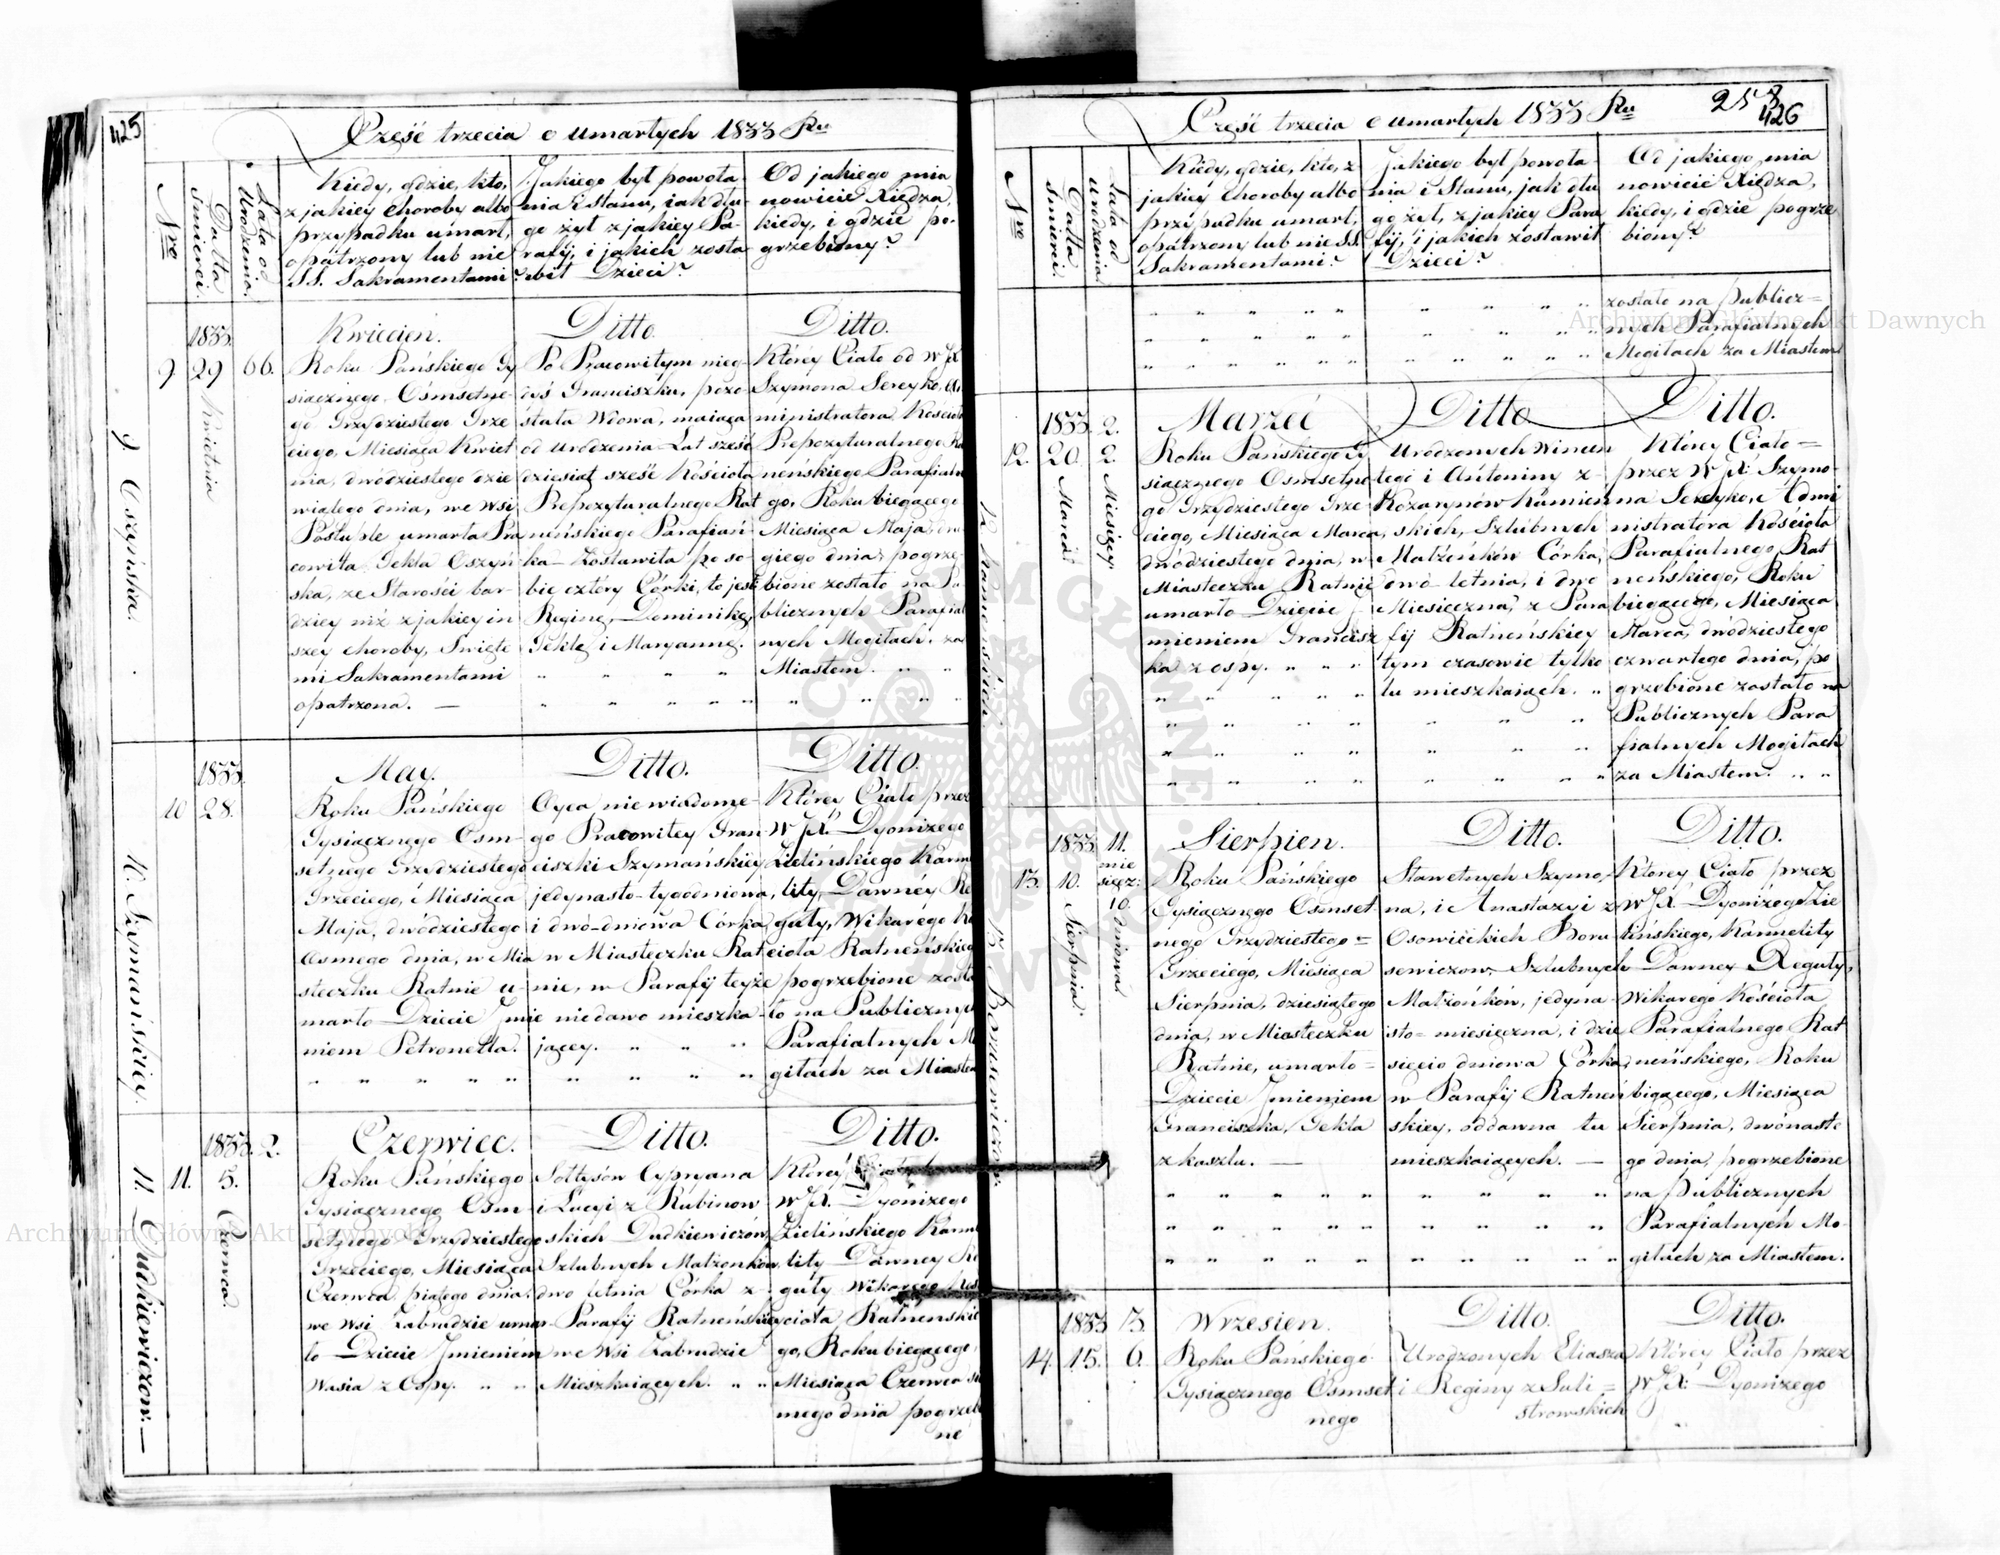 425
Część trzecia o umarłych 1833 Ru
Nro
Datta śmierci.
Lata od Urodzenia.
Kiedy, gdzie, kto,
z jakiey choroby albo
przypadku umarł,
opatrzony lub nie
SS. Sakramentami?
Jakiego był powoła-
nia i stanu, iak dłu-
go żył z jakiey Pa-
rafij, i jakich zosta
wił Dzieci?
Od jakiego mia
nowicie Xiędza,
kiedy, i gdzie po-
grzebiony?
9. Oszyńska.
1833.
9 29 Kwietnia 66.
Kwiecień.
Roku Pańskiego Ty
siącznego Ośmsetne-
go Trzydziestego Trze
ciego, Miesiąca Kwiet
nia, dwódziestego dzie
wiątego dnia, we Wsi
umarła Pra
cowita Tekla Oszyń
ska, ze Starości bar-
dziey niż z jakiey in
szey choroby, Święte
mi Sakramentami
opatrzona. —
Ditto.
Po Pracowitym nieg-
dyś Franciszku, pozo
stała Wdowa, maiąca
od Urodzenia Lat sześć
dziesiąt sześć Kościoła
Prepozyturalnego Rat
neńskiego Parafian
ka Zostawiła po so-
bie cztéry Córki, to jest
Reginę, Dominikę,
Teklę i Maryannę.
Ditto.
Któréy Ciało od W JX
Szymona Sereyko, A
ministratora Kościoła
Prepozyturalnego Ra
neńskiego Parafialn
go, Roku biegącego
Miesiąca Maja, dru
giego dnia, pogrze-
bione zostało na Pu
blicznych Parafial
nych Mogiłach za
Miastem.
10. Szymańskiey.
1833.
10 28.
May.
Roku Pańskiego
Tysiącznego Osm-
setnego Trzydziestego
Trzeciego, Miesiąca
Maja, dwódziestego
Osmego dnia, w Mia
steczku Ratnie u-
marło Dziecie Imie
niem Petronella.
Ditto.
Oyca nie wiadome-
go Pracowitey Fran
ciszki Szymańskiey
jedynasto-tygodniowa,
i dwó-dniowa Córka
w Miasteczku Rat
nie, w Parafij teyże
niedawo mieszka-
jącey.
Ditto.
Którey Ciało przez
W JX. Dyonizego
Zielińskiego Karme
lity, Dawnéy Re
guły, Wikarego Ko
ścioła Ratneńskieg
pogrzebione zosta
ło na Publicznyc
Parafialnych Mo
giłach za Miaste
11. Dudkiewiczow.—
1833. 2.
11. 5. Czerwca.
Czerwiec.
Roku Pańskiego
Tysiącznego Osm-
setnego Trzydziestego
Trzeciego, Miesiąca
Czerwca piątego dnia,
we Wsi Zabrodzie umar
ło Dziecie Imieniem
Wasia z Ospy.
Ditto.
Sołtysów Cypryana
i Łucyi z Rubinow
skich Dudkiewiczów,
Szlubnych Małżonków
dwo letnia Córka z
Parafij Ratneńskiey
we Wsi Zabrodzie
Mieszkaiących.
Ditto.
Którey Ciało
W JX. Dyonizego
Zielińskiego Karme
lity Dawney Re
guły Wikarego Koś
cioła Ratneńskie
go, Roku biegącego,
Miesiąca Czerwca
mego dnia pogrzeb
ne
258
426
Część trzecia o umarłych 1833 Ru
Nro
Datta śmierci.
Lata od Urodzenia
Kiedy, gdzie, kto, z
jakiéy choroby albo
przypadku umarł,
opatrzony lub nie SS.
Sakramentami?
Jakiego był powoła-
nia i Stanu, jak dłu
go żył, z jakiey Para
fij, i jakich zostawił
Dzieci?
Od jakiego mia
nowicie Xiędza,
kiedy, i gdzie pogrze
biony?
zostało na publicz=
nych Parafialnych
Mogiłach za Miastem
12. Kamieńskich.
1833. 2.
12. 20 Marca 2. Miesięcy
Marzec
Roku Pańskiego Ty
siącznego Osmsetne
go Trzydziestego Trze
ciego, Miesiąca Marca,
dwódziestego dnia, w
Miasteczku Ratnie
umarło Dziecie I
mieniem Francisz
ka z ospy.
Ditto
Urodzonych Wincen
tego i Antoniny z
Kozarynów Kamień
skich, Szlubnych
Małżonków Córka,
dwó letnia, i dwo
Miesięczna, z Para
fij Ratneńskiey
tym czasowie tylko
tu mieszkaiących.
Ditto.
Którey Ciało =
przez W JX: Szymo-
na Sereyko, Admi
nistratora Kościoła
Parafialnego Rat
neńskiego, Roku
biegącego, Miesiąca
Marca, dwódziestego
czwartego dnia, po
grzebione zostało na
Publicznych Para
fialnych Mogiłach
za Miastem.
13. Borusewiczow.
1833. 11. mie sięcz:
13. 10. Sierpnia 10. dniowa
Sierpien.
Roku Pańskiego
Tysiącznego Osmset
nego Trzydziestego =
Trzeciego, Miesiąca
Sierpnia, dziesiątego
dnia, w Miasteczku
Ratnie, umarło =
Dziecie Imieniem
Franciszka, Tekla
z kaszlu. —
Ditto.
Sławetnych Szymo-
na, i Anastazyi z
Osowieckich Boru
sewiczow. Szlubnych
Małżonków, jedyna-
sto=miesięczna, i dzie
sięcio dniowa Córka,
w Parafij Ratneń
skiey, oddawna tu
mieszkaiących. —
Ditto.
Którey Ciało przez
W JX. Dyonizego Zie
lińskiego, Karmelity
Dawney Reguły,
Wikarego Kościoła
Parafialnego Rat
neńskiego, Roku
bigącego, Miesiąca
Sierpnia, dwónaste
go dnia, pogrzebione
na publicznych
Parafialnych Mo-
giłach za Miastem.
1833 3.
14. 15. 6.
Wrzesien.
Roku Pańskiego
Tysiącznego Osmset
nego
Ditto.
Urodzonych Eliasza
i Reginy z Suli=
strowskich
Ditto.
Którey Ciało przez
W JX: Dyonizego
Archiwum Główne Akt Dawnych
Archiwum Główne Akt Dawnych